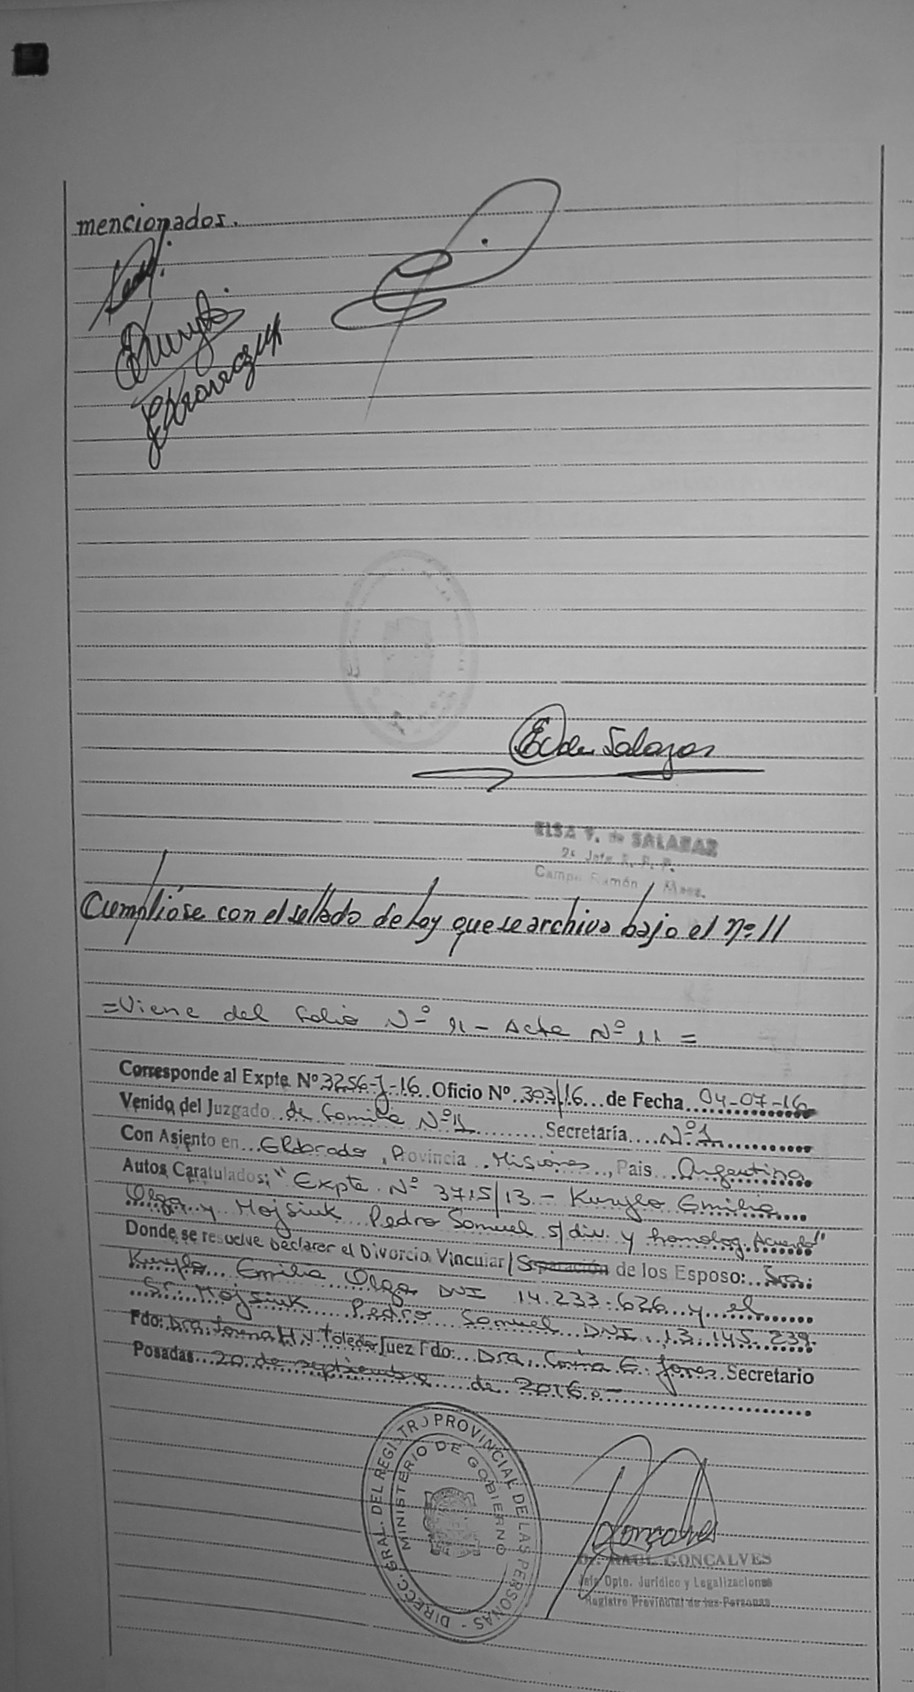 mencionados.
E. de Salazar
ELSA V. de SALAZAR
Campo Ramón Mnes.
Cumplióse con el sellado de Ley que se archiva bajo el nº 11
=Viene del Folio Nº 11 - Acta Nº 11 =
Corresponde al Expte. Nº 3256-J-16 Oficio Nº 303/16 de Fecha 04-07-16
Venido del Juzgado de Familia Nº 1 Secretaría Nº 1
Con Asiento en Eldorado, Provincia Misiones, País Argentina
Autos Caratulados: "Expte. Nº 3715/13 - Kurylo Emilia
Olga y Mojsiuk Pedro Samuel s/div. y homolog. Acuerdo"
Donde se resuelve Declarar el Divorcio Vincular/Separación de los Esposo: Sra.
Kurylo Emilia Olga DNI 14.233.626 y el
Sr. Mojsiuk Pedro Samuel DNI 13.145.239.
Fdo: Dra. H. V. Toledo Juez Fdo: Dra. G. Jones Secretario
Posadas 20 de septiembre de 2016.-
DIRECC. GRAL. DEL REGISTRO PROVINCIAL DE LAS PERSONAS -
MINISTERIO DE GOBIERNO
Dr. RAUL GONCALVES
Jefe Dpto. Jurídico y Legalizaciones
Registro Provincial de las Personas